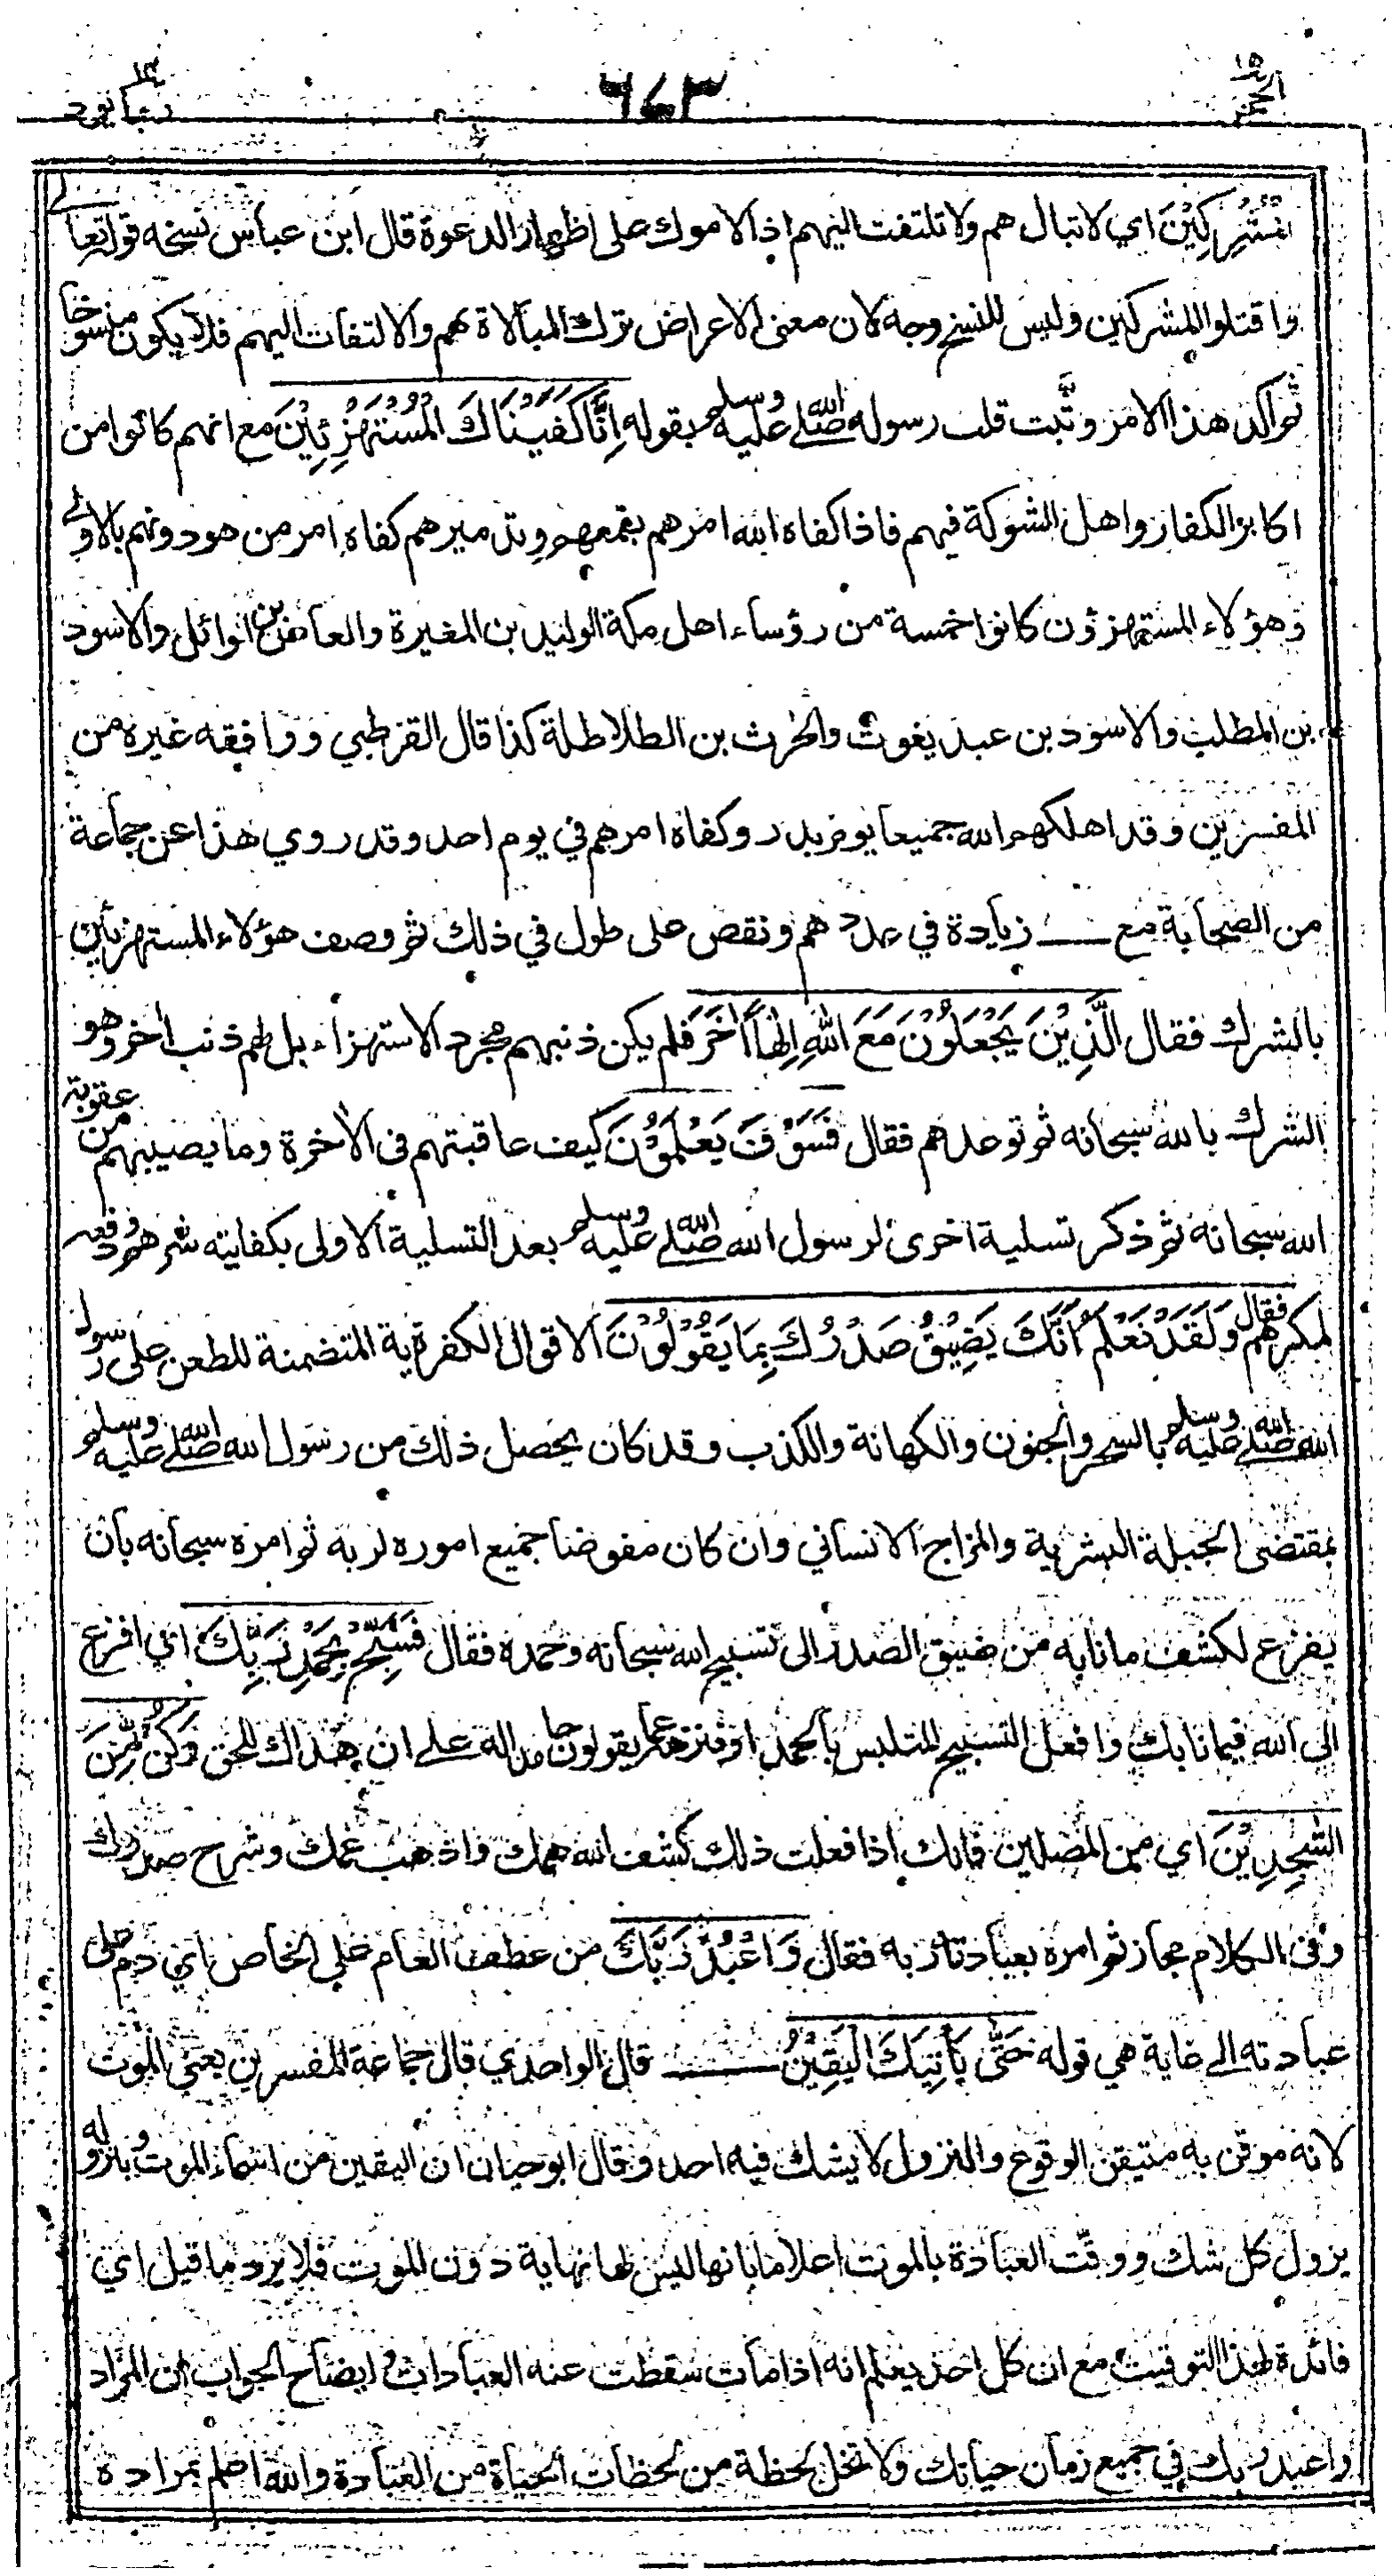 الحجر ١٥
٦٤٣
ربما ١٤
المُشْرِكِيْنَ اي لاتبال هم ولا تلتفت اليهم اذ الاموك على اظهار الدعوة قال ابن عباس نسخه قوله تعالى
واقتلوا المشركين وليس للنسخ وجه لان معنى الاعراض ترك المبالاة بهم والالتفات اليهم فلا يكون منسوخا
ثم اكد هذا الامر وثبت قلب رسوله صلى الله عليه وسلم بقوله اِنَّا كَفَيْنَاكَ الْمُسْتَهْزِئِيْنَ مع انهم كانوا من
اكابر الكفار واهل الشوكة فيهم فاذا كفاه الله امرهم بقمعهم وتدميرهم كفاه امر من هو دونهم بالاولى
وهؤلاء المستهزؤن كانوا خمسة من رؤساء اهل مكة الوليد بن المغيرة والعاص بن الوائل والاسود
بن المطلب والاسود بن عبد يغوث والحرث بن الطلاطلة كذا قال القرطبي ووافقه غيره من
المفسرين وقد اهلكهم الله جميعا يوم بدر وكفاه امرهم في يوم احد وقد روي هذا عن جماعة
من الصحابة مع زيادة في عددهم ونقص على طول في ذلك ثم وصف هؤلاء المستهزئين
بالشرك فقال الَّذِيْنَ يَجْعَلُوْنَ مَعَ اللّٰهِ اِلٰهًا اٰخَرَ فلم يكن ذنبهم مجرد الاستهزاء بل لهم ذنب اخر وهو
الشرك بالله سبحانه ثم توعدهم فقال فَسَوْفَ يَعْلَمُوْنَ كيف عاقبتهم في الاخرة وما يصيبهم من عقوبة
الله سبحانه ثم ذكر تسلية اخرى لرسول الله صلى الله عليه وسلم بعد التسلية الاولى بكفايته شرهم ودفعه
لمكرهم فقال وَلَقَدْ نَعْلَمُ اَنَّكَ يَضِيْقُ صَدْرُكَ بِمَا يَقُوْلُوْنَ الاقوال الكفرية المتضمنة للطعن على رسول
الله صلى الله عليه وسلم بالسحر والجنون والكهانة والكذب وقد كان يحصل ذلك من رسول الله صلى الله عليه وسلم
بمقتضى الجبلة البشرية والمزاج الانساني وان كان مفوضا جميع اموره لربه ثم امره سبحانه بان
يفزع لكشف ما نابه من ضيق الصدر الى تسبيح الله سبحانه وحمده فقال فَسَبِّحْ بِحَمْدِ رَبِّكَ اي افزع
الى الله فيما نابك وافعل التسبيح المتلبس بالحمد او فنزهه عما يقولون حامدا له على ان هداك للحق وَكُنْ مِّنَ
السّٰجِدِيْنَ اي من المصلين فانك اذا فعلت ذلك كشف الله همك واذهب غمك وشرح صدرك
وفي الكلام مجاز ثم امره بعبادة ربه فقال وَاعْبُدْ رَبَّكَ من عطف العام على الخاص اي دم على
عبادته الى غاية هي قوله حَتّٰى يَأْتِيَكَ الْيَقِيْنُ قال الواحدي قال جماعة المفسرين يعني الموت
لانه موقن به متيقن الوقوع والنزول لا يشك فيه احد وقال ابو حيان ان اليقين من اسماء الموت وبنزوله
يزول كل شك ووقّت العبادة بالموت اعلاما بانها ليس لها نهاية دون الموت فلا يرد ما قيل اي
فائدة لهذا التوقيت مع ان كل احد يعلم انه اذا مات سقطت عنه العبادات وايضاح الجواب ان المراد
واعبد ربك في جميع زمان حياتك ولا تخل لحظة من لحظات الحياة من العبادة والله اعلم بمراده